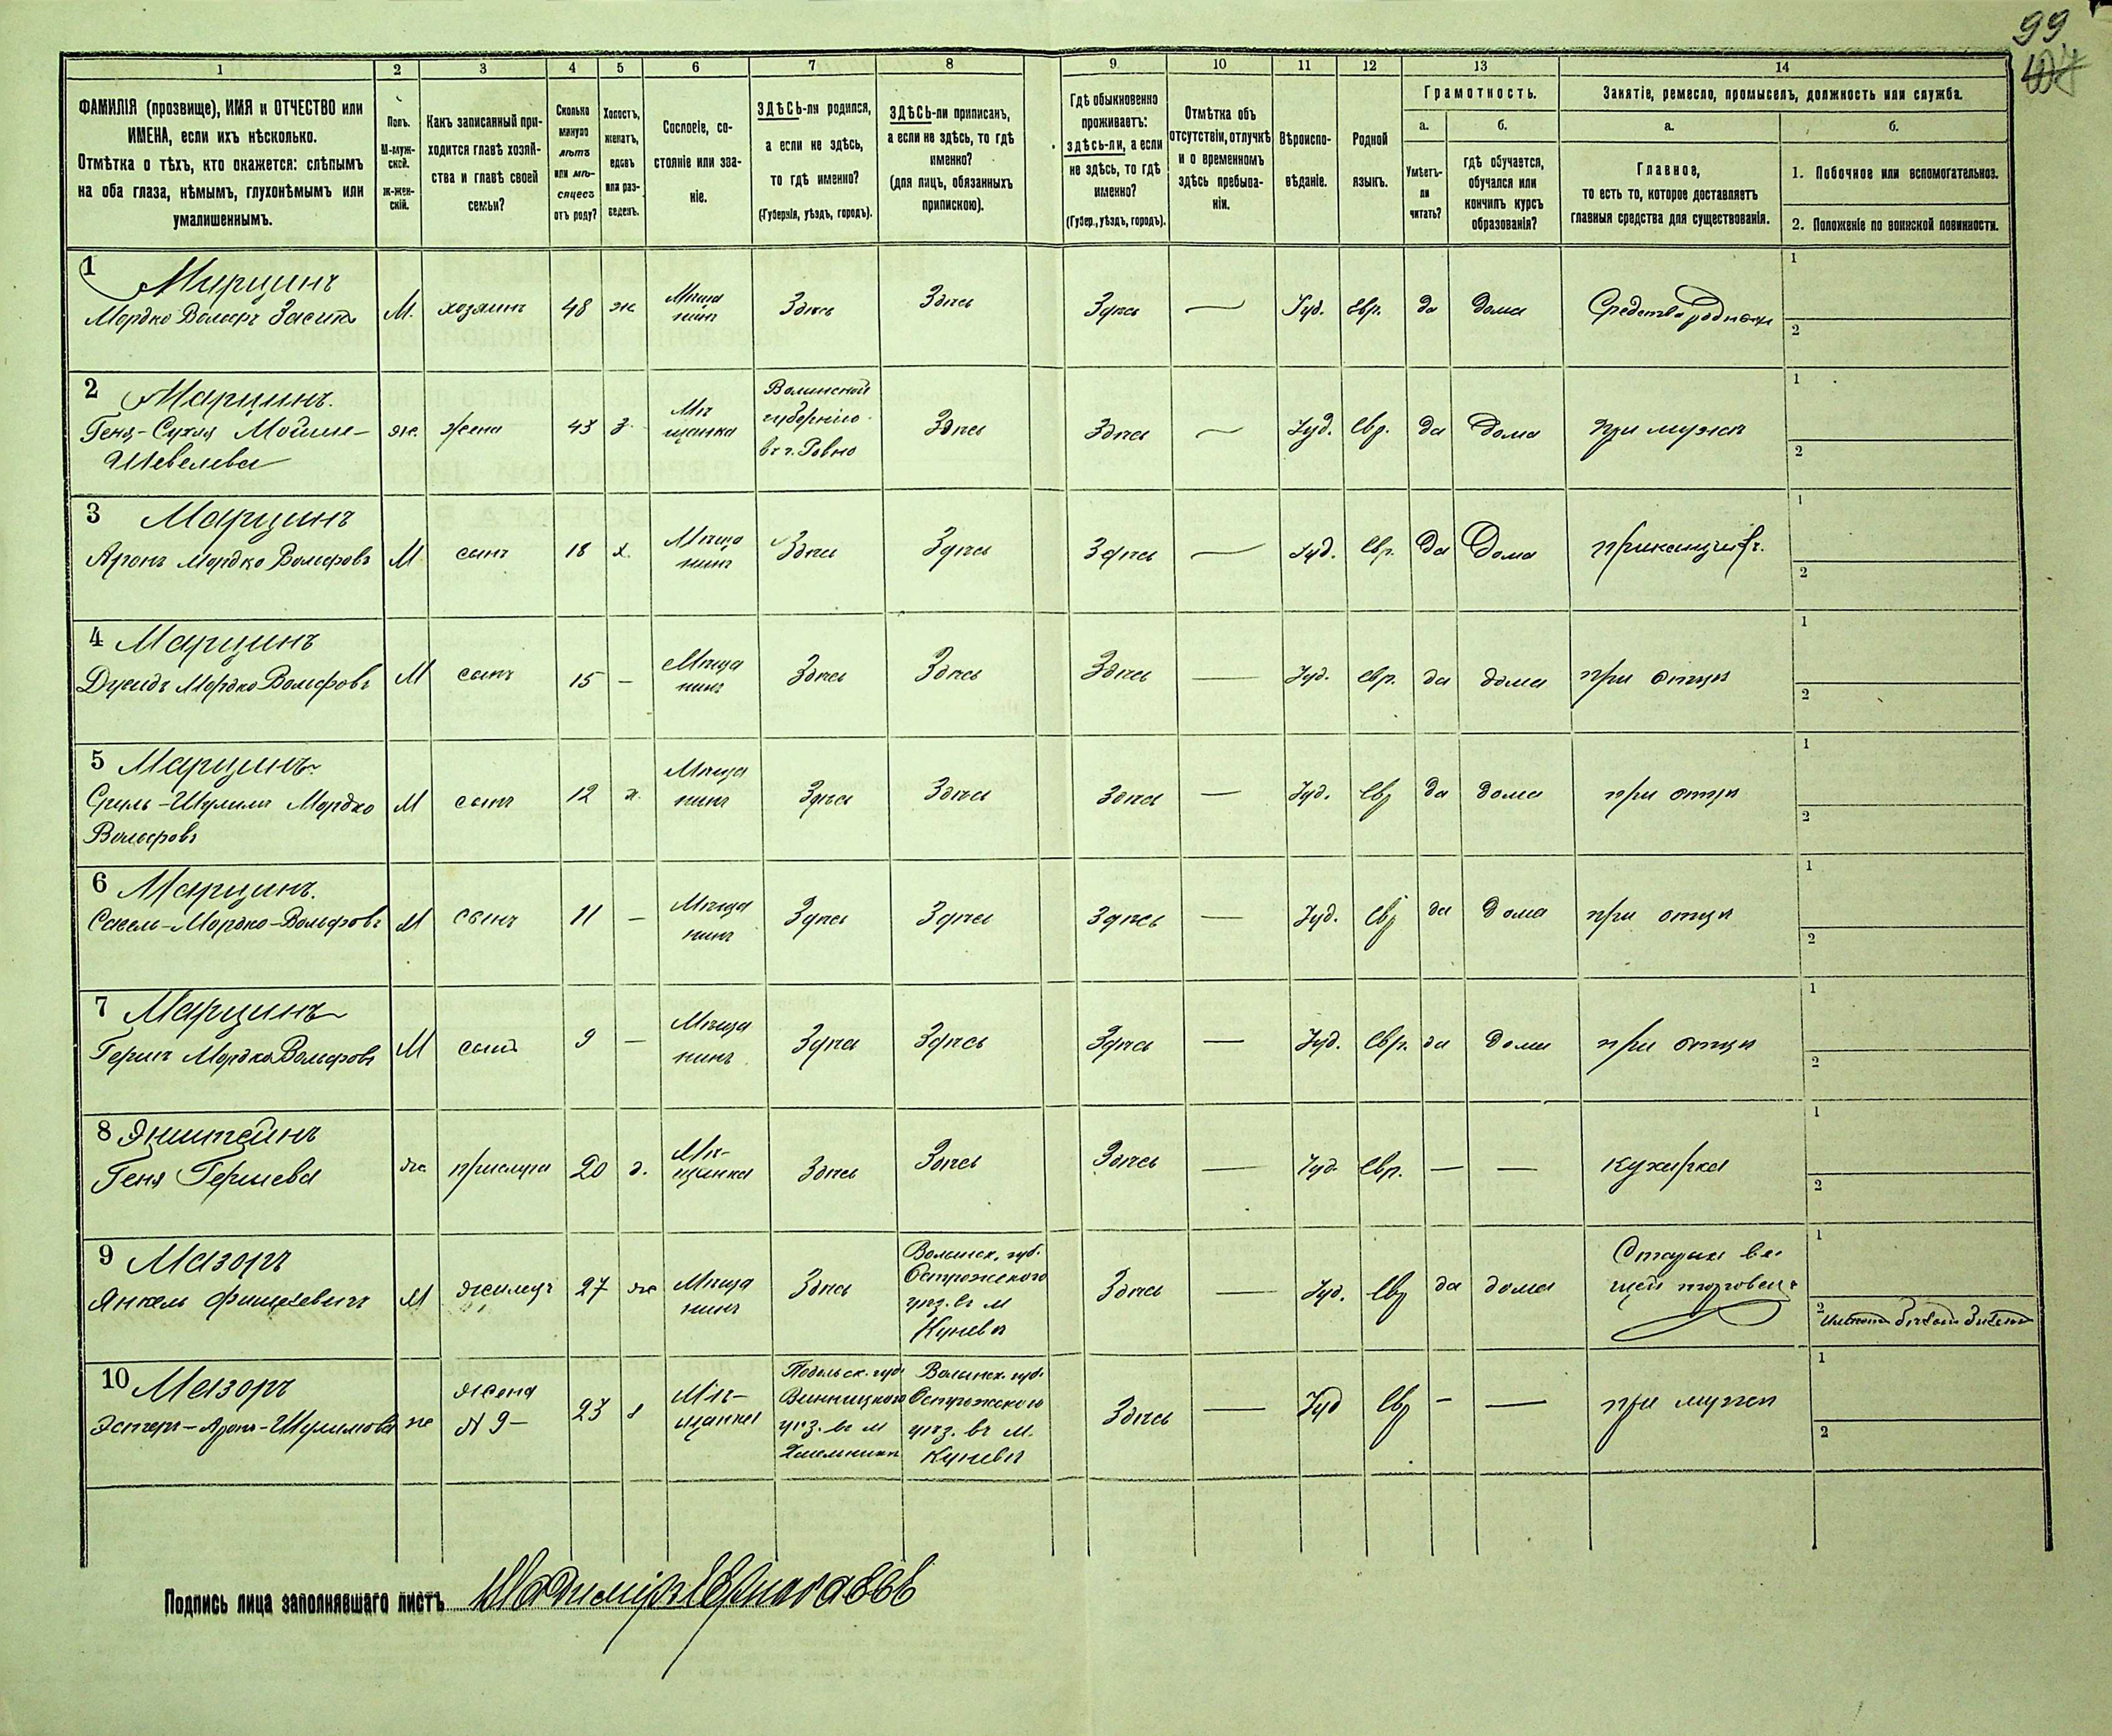 99
1 2 3 4 5 6 7 8 9 10 11 12 13 14
ФАМИЛІЯ (прозвище), ИМЯ и ОТЧЕСТВО или
ИМЕНА, если ихъ нѣсколько.
Отмѣтка о тѣхъ, кто окажется: слѣпымъ
на оба глаза, нѣмымъ, глухонѣмымъ или
умалишеннымъ.
Полъ.
М-муж-
ской.
ж-жен-
скій.
Какъ записанный при-
ходится главѣ хозяй-
ства и главѣ своей
семьи?
Сколько
минуло
лѣтъ
или мѣ-
сяцевъ
отъ роду?
Холостъ,
женатъ,
вдовъ
или раз-
веденъ.
Сословіе, со-
стояніе или зва-
ніе.
ЗДѢСЬ-ли родился,
а если не здѣсь,
то гдѣ именно?
(Губернія, уѣздъ, городъ).
ЗДѢСЬ-ли приписанъ,
а если не здѣсь, то гдѣ
именно?
(для лицъ, обязанныхъ
припискою).
Гдѣ обыкновенно
проживаетъ:
здѣсь-ли, а если
не здѣсь, то гдѣ
именно?
(Губер., уѣздъ, городъ).
Отмѣтка объ
отсутствіи, отлучкѣ
и о временномъ
здѣсь пребыва-
ніи.
Вѣроиспо-
вѣданіе.
Родной
языкъ.
Грамотность.
а.
Умѣетъ-
ли
читать?
б.
гдѣ обучается,
обучался или
кончилъ курсъ
образованія?
Занятіе, ремесло, промыселъ, должность или служба.
а.
Главное,
то есть то, которое доставляетъ
главныя средства для существованія.
б.
1. Побочное или вспомогательное.
2. Положеніе по воинской повинности.
1 Марцинъ
Мордко Вольфъ
М. хозяинъ 48 ж Мѣща
нинъ Здѣсь Здѣсь Здѣсь — Іуд. евр. да дома Средства
1
2
2 Марцинъ.
Геня-Сухля Мошко-
Шевелева
же. жена 43 з. Мѣ
щанка
Волынской
губерніи
въ г. Ровно
Здѣсь Здѣсь — Іуд. Евр. да дома при мужѣ
1
2
3 Марцинъ
Аронъ Мордко Вольфовъ
М сынъ 18 х. Мѣща
нинъ Здѣсь Здѣсь Здѣсь — Іуд. Евр. да Дома приказчикъ.
1
2
4 Марцинъ
Мордко Вольфовъ
М сынъ 15 — Мѣща
нинъ Здѣсь Здѣсь Здѣсь — Іуд. Евр. да дома при отцѣ
1
2
5 Марцинъ
Сруль-Шулимъ Мордко
Вольфовъ
М сынъ 12 х. Мѣща
нинъ Здѣсь Здѣсь Здѣсь — Іуд. Евр да дома при отцѣ
1
2
6 Марцинъ.
Мордко-Вольфовъ
М сынъ 11 — Мѣща
нинъ Здѣсь Здѣсь Здѣсь — Іуд. Евр да дома при отцѣ
1
2
7 Марцинъ
Гершъ Мордко Вольфовъ
М сынъ 9 — Мѣща
нинъ Здѣсь Здѣсь Здѣсь — Іуд. Евр. да дома при отцѣ
1
2
8
Геня Гершева
же. прислуга 20 д. Мѣ-
щанка Здѣсь Здѣсь Здѣсь — Іуд. Евр. — — кухарка
1
2
9 Мазоръ
Янкель Фишелевичъ
М жилецъ 27 же Мѣща
нинъ Здѣсь
Волынск. губ.
Острожского
уѣз. въ м
Куневѣ
Здѣсь — Іуд. Евр да дома
Старых ве-
щей торговецъ
1
2
10 Мазоръ
Эстеръ-Аронъ-Шулимова
же
жена
№ 9—
23 з Мѣ-
щанка
Подольск. губ
Винницкого
уѣз. въ м
Хмельникѣ
Волынск. губ.
Острожского
уѣз. въ м.
Куневѣ
Здѣсь — Іуд Евр — — при мужѣ
1
2
Подпись лица заполнявшаго листъ